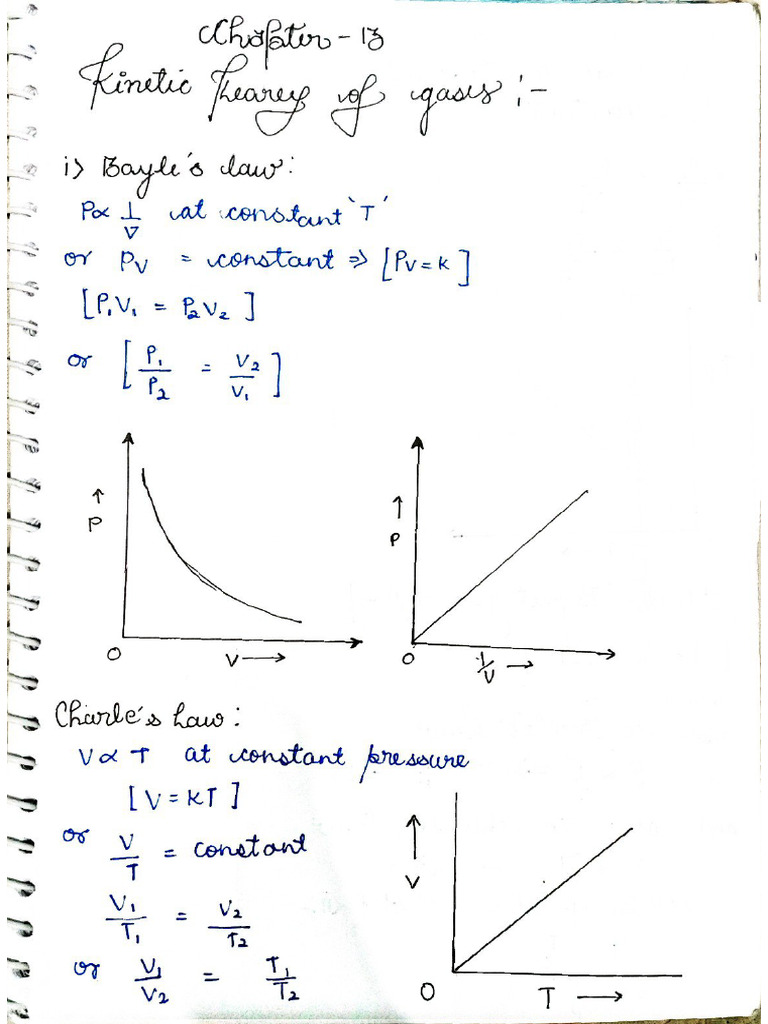 Chapter - 13
Kinetic Thearey of gases :-
i> Bayle's law:
P∝ 1/V at constant 'T'
or PV = constant ⇒ [PV = K]
[P₁V₁ = P₂V₂]
or [P₁/P₂ = V₂/V₁]
↑ P
O
V →
↑ P
O
1/V →
Charle's Law:
V ∝ T at constant pressure
[V = KT]
or V/T = constant
V₁/T₁ = V₂/T₂
or V₁/V₂ = T₁/T₂
↑ V
O
T →